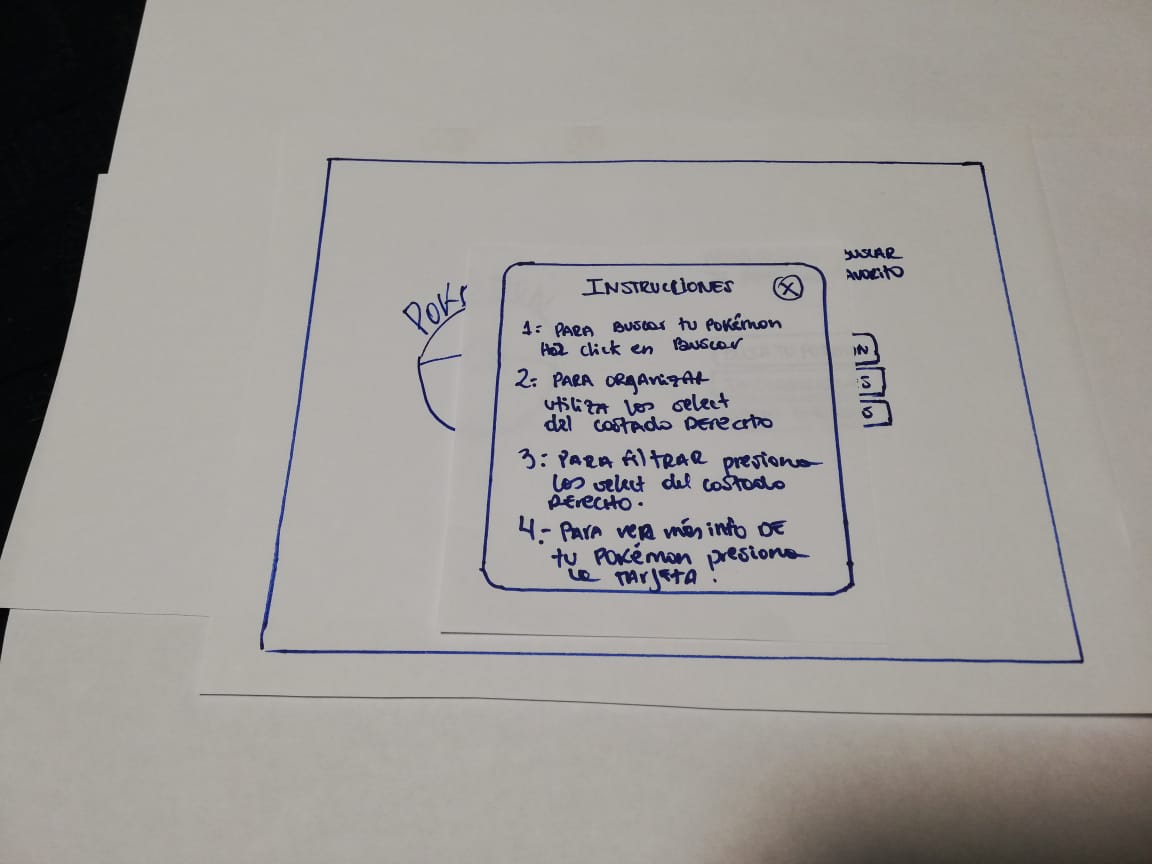 INSTRUCCIONES X
1: PARA BUSCAR tu POKémon
Haz click en BUSCAR
2: PARA ORGANIZAR
utiliza los select
del COSTADO DERECHO
3: PARA filtRAR presiona
los select del costado
DERECHO.
4.- PARA VER más info DE
tu POKémon presiona
la TARJETA.
POK
USCAR
AVORITO
IN
S
S